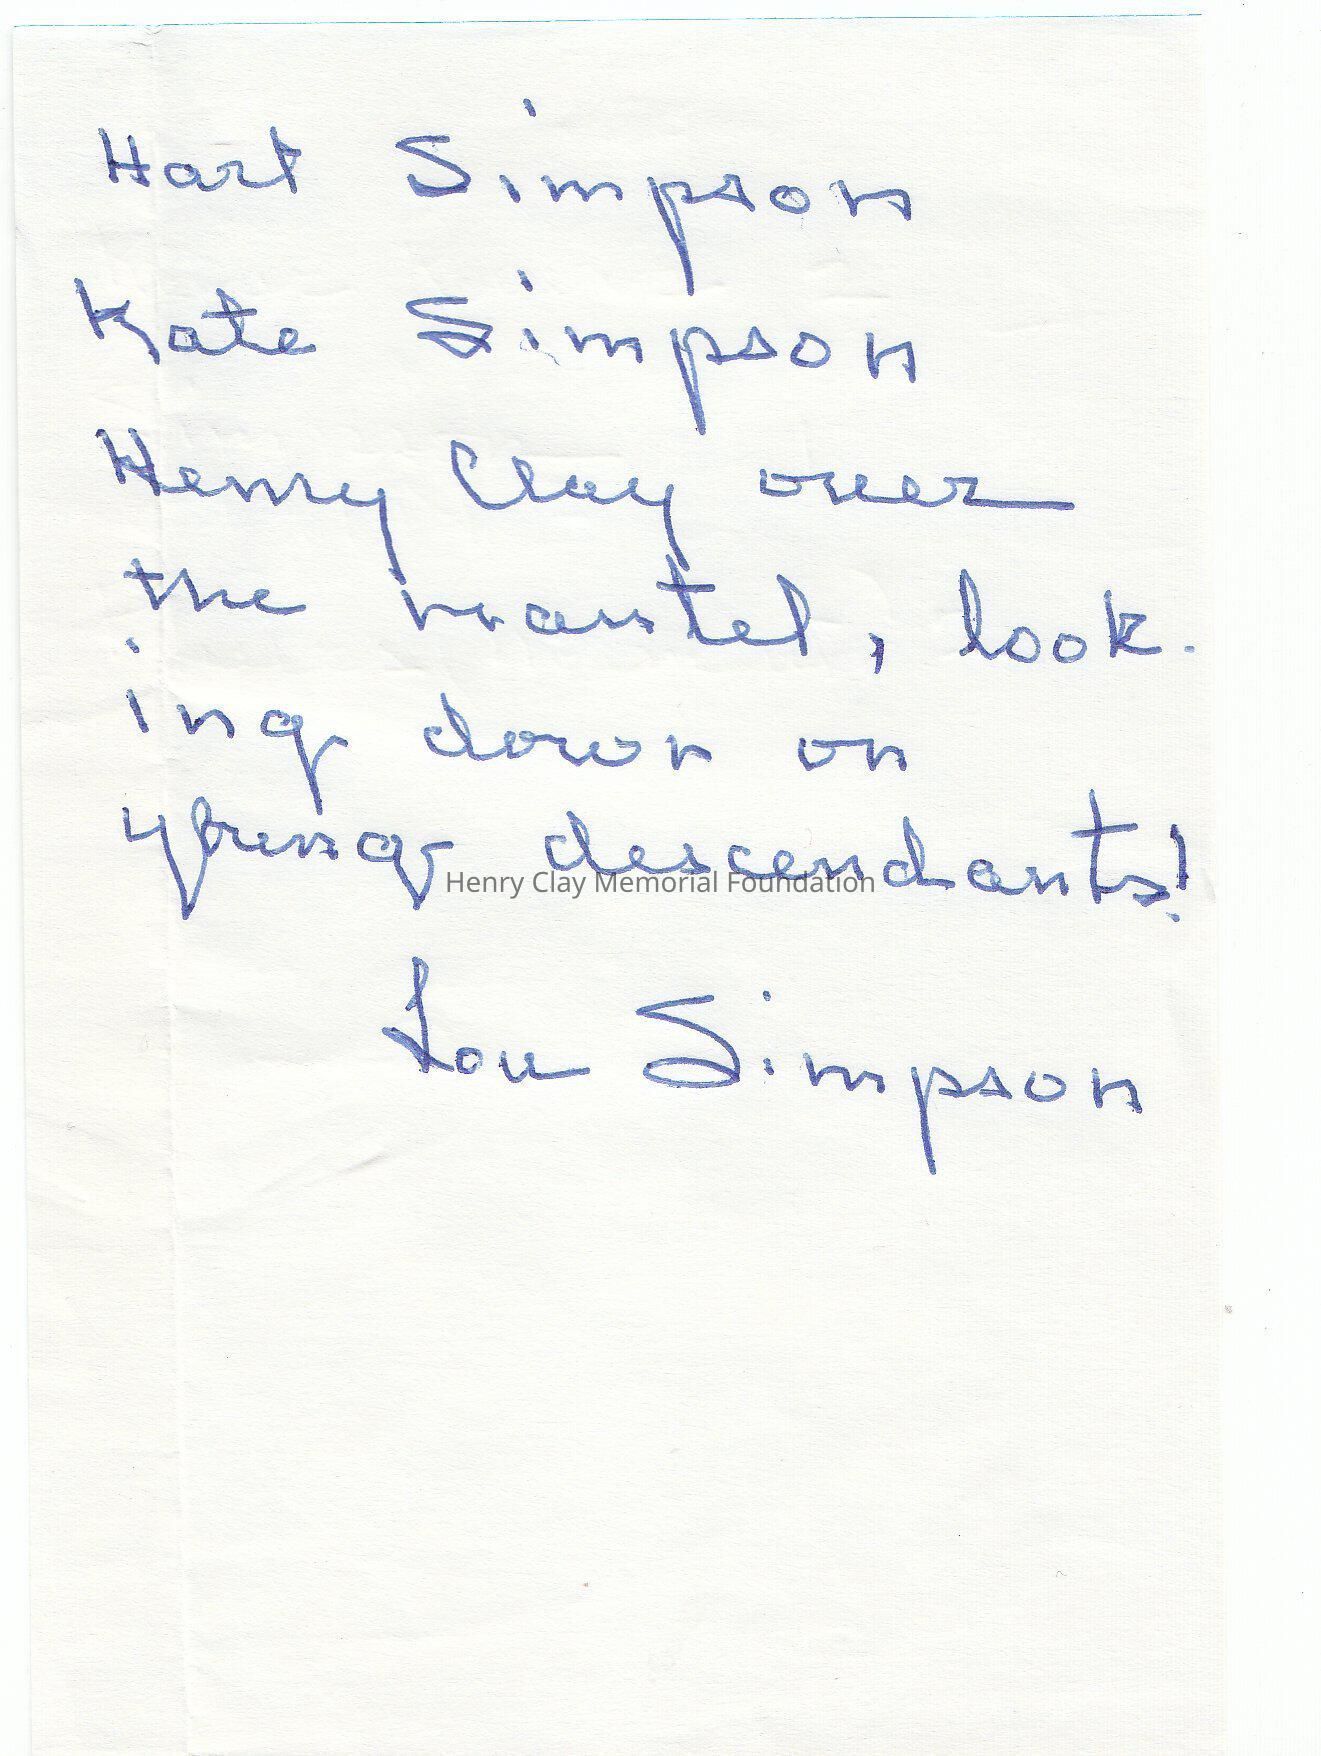 Hart Simpson
Kate Simpson
Henry Clay over
the mantel, look-
ing down on
young descendants!
Henry Clay Memorial Foundation
Lou Simpson